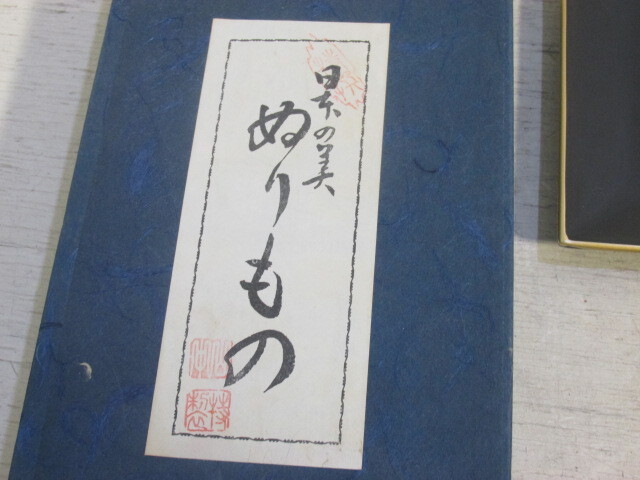 日本の美
ぬりもの
特製